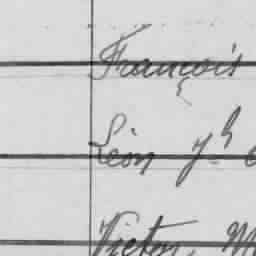 François
Léon Jh
Victor, M